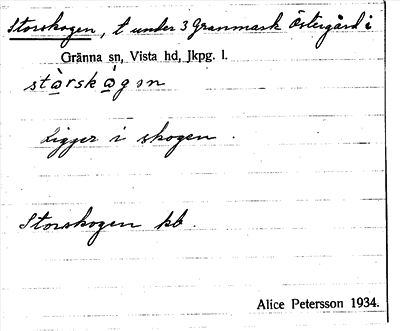 Storskogen, t under 3 Granmark Östergård i
Gränna sn, Vista hd, Jkpg. l.
stòrskògən
Ligger i skogen.
Storskogen kb.
Alice Petersson 1934.